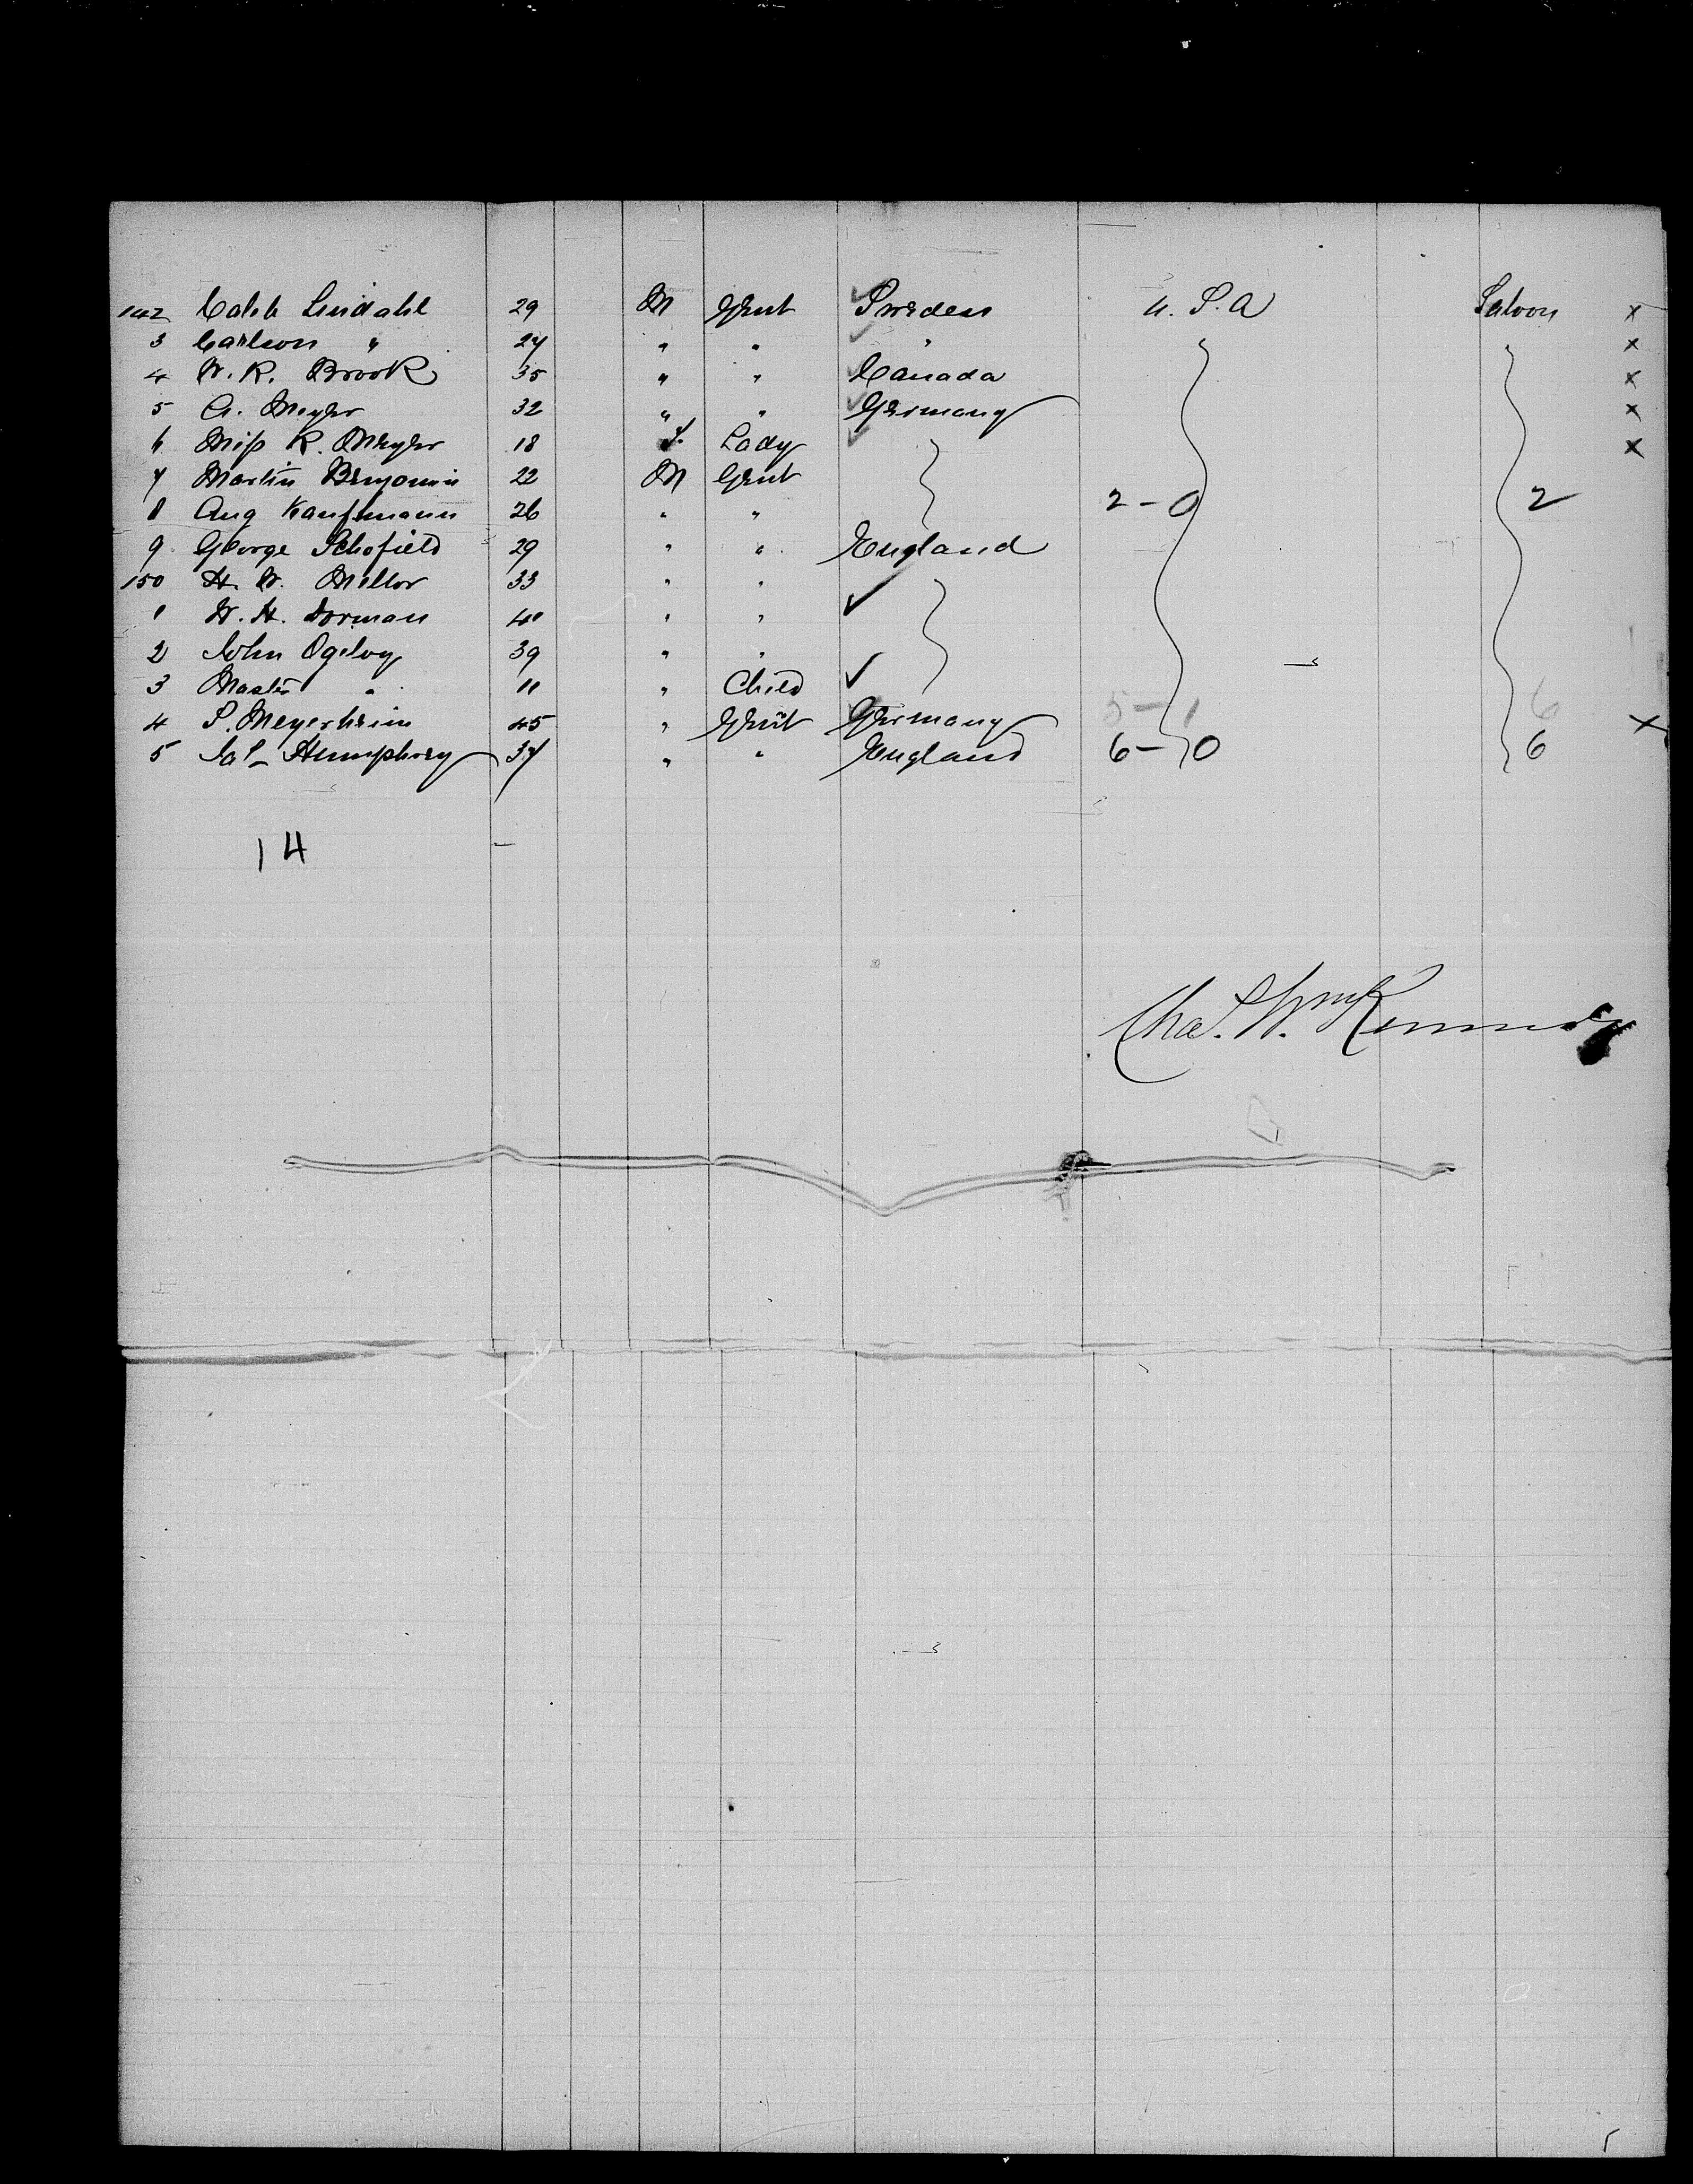 142 Caleb Lindahl 29 M Gent Sweden U. S. A Saloon x
3 Carlson " 27 " " " x
4 W. R. Brook 35 " " Canada x
5 A. Meyer 32 " " Germany x
6 Miss R. Meyer 18 F. Lady x
7 Martin Benjamin 22 M Gent
8 Aug Kauffmann 26 " " 2-0 2
9 George Schofield 29 " " England
150 H. W. Mellor 33 " "
1 W. H. Dorman 40 " "
2 John Ogilvy 39 " "
3 Master " 11 " Child
4 S. Meyerheim 45 " Gent Germany 5-1 6 x
5 Humphrey 37 " " England 6-0 6
14
Chas. Wm Kennedy